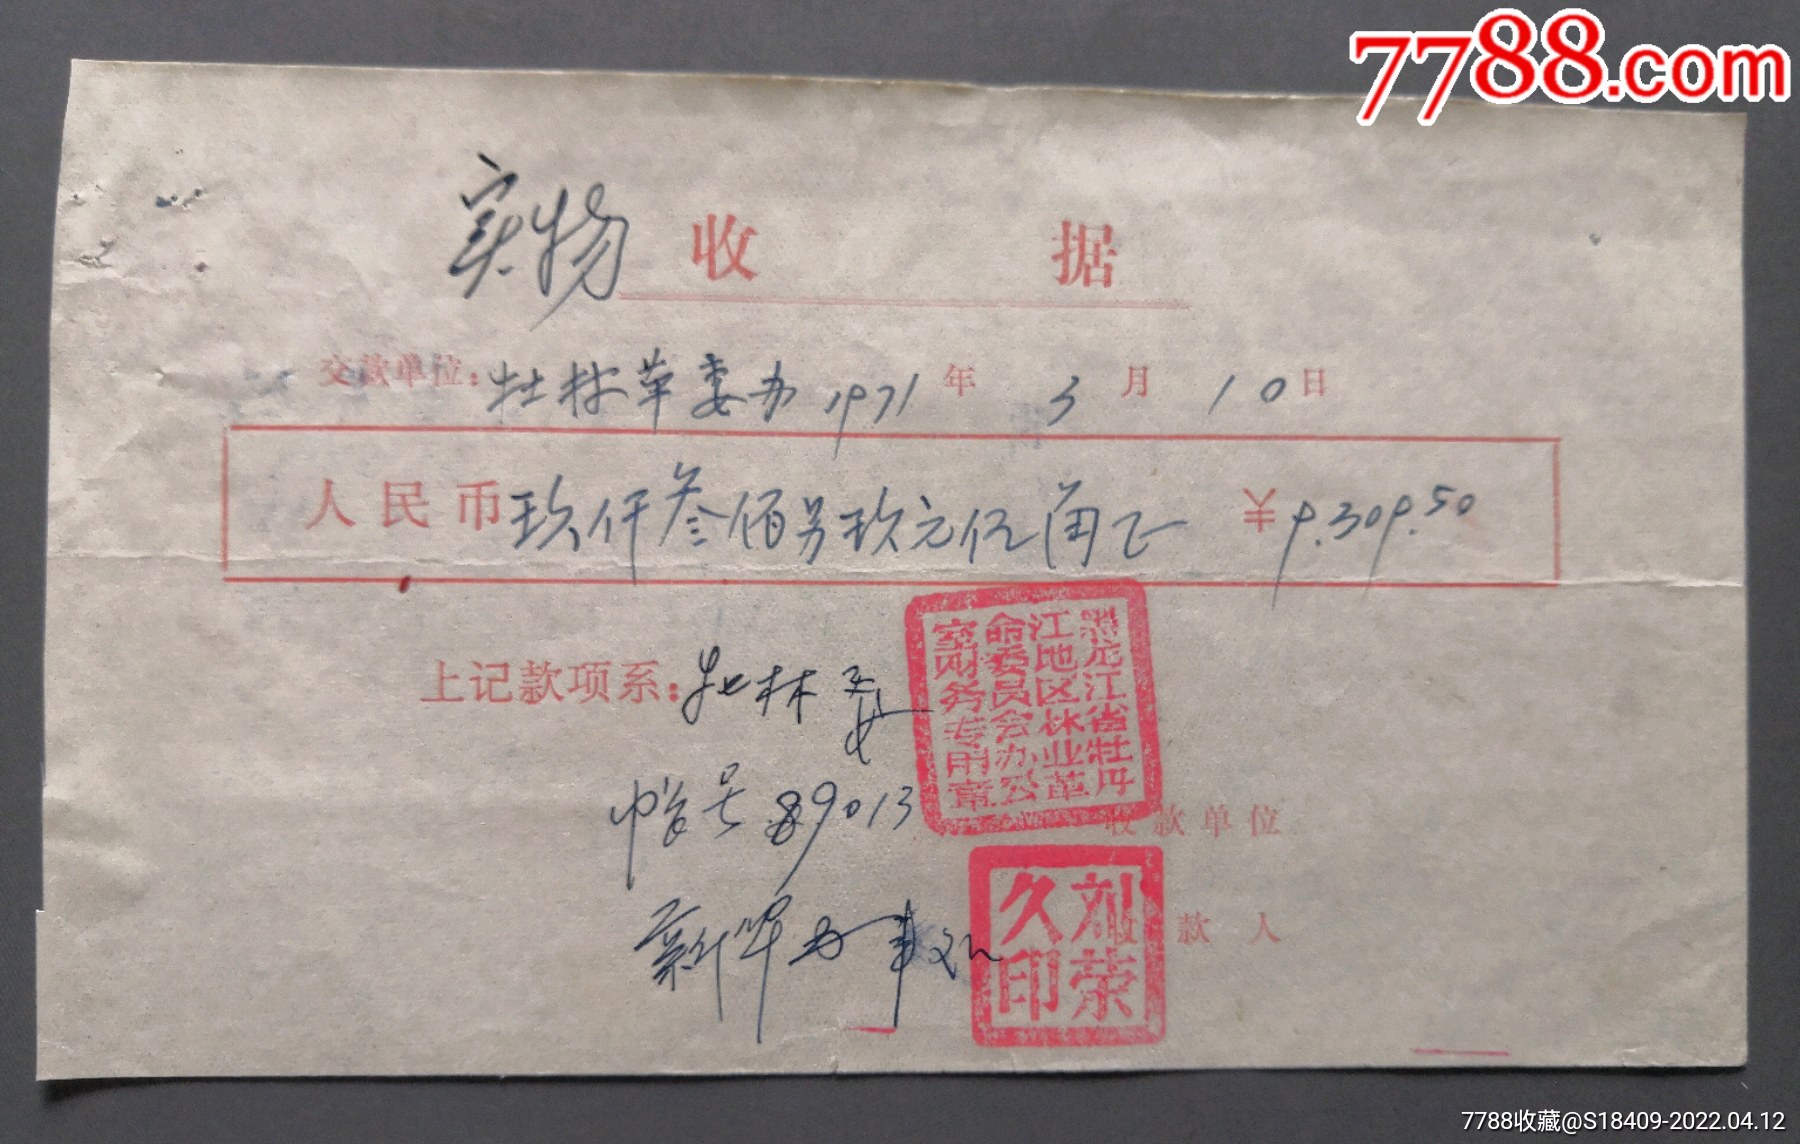 7788.com
实物 收 据
交款单位：牡林革委办 1971年 3月 10日
人民币 玖仟叁佰另玖元伍角正 ¥9.309.50
上记款项系：牡林委
帐号 89013
新华办事处
黑龙江省牡丹
江地区林业革
命委员会办公
室财务专用章
收款单位
收款人
刘荣
久印
7788收藏@S18409-2022.04.12